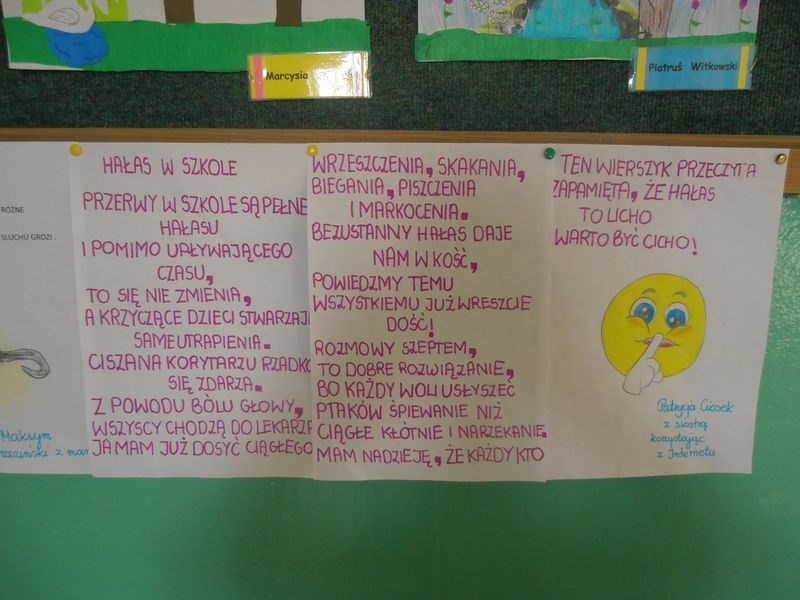 Marcysia
Piotruś Witkowski
RÓŻNE
SŁUCHU GROZI.
Maksym
HAŁAS W SZKOLE
PRZERWY W SZKOLE SĄ PEŁNE
HAŁASU
I POMIMO UPŁYWAJĄCEGO
CZASU,
TO SIĘ NIE ZMIENIA,
A KRZYCZĄCE DZIECI STWARZAJĄ
SAME UTRAPIENIA.
CISZA NA KORYTARZU RZADKO
SIĘ ZDARZA.
Z POWODU BÓLU GŁOWY,
WSZYSCY CHODZĄ DO LEKARZA
JA MAM JUŻ DOSYĆ CIĄGŁEGO
WRZESZCZENIA, SKAKANIA,
BIEGANIA, PISZCZENIA
I MARKOCENIA.
BEZUSTANNY HAŁAS DAJE
NAM W KOŚĆ,
POWIEDZMY TEMU
WSZYSTKIEMU JUŻ WRESZCIE
DOŚĆ!
ROZMOWY SZEPTEM,
TO DOBRE ROZWIĄZANIE,
BO KAŻDY WOLI USŁYSZEĆ
PTAKÓW ŚPIEWANIE NIŻ
CIĄGŁE KŁÓTNIE I NARZEKANIE.
MAM NADZIEJĘ, ŻE KAŻDY KTO
TEN WIERSZYK PRZECZYTA
ZAPAMIĘTA, ŻE HAŁAS
TO LICHO
WARTO BYĆ CICHO!
Patrycja Ciosek
z siostrą
korzystając
z Internetu